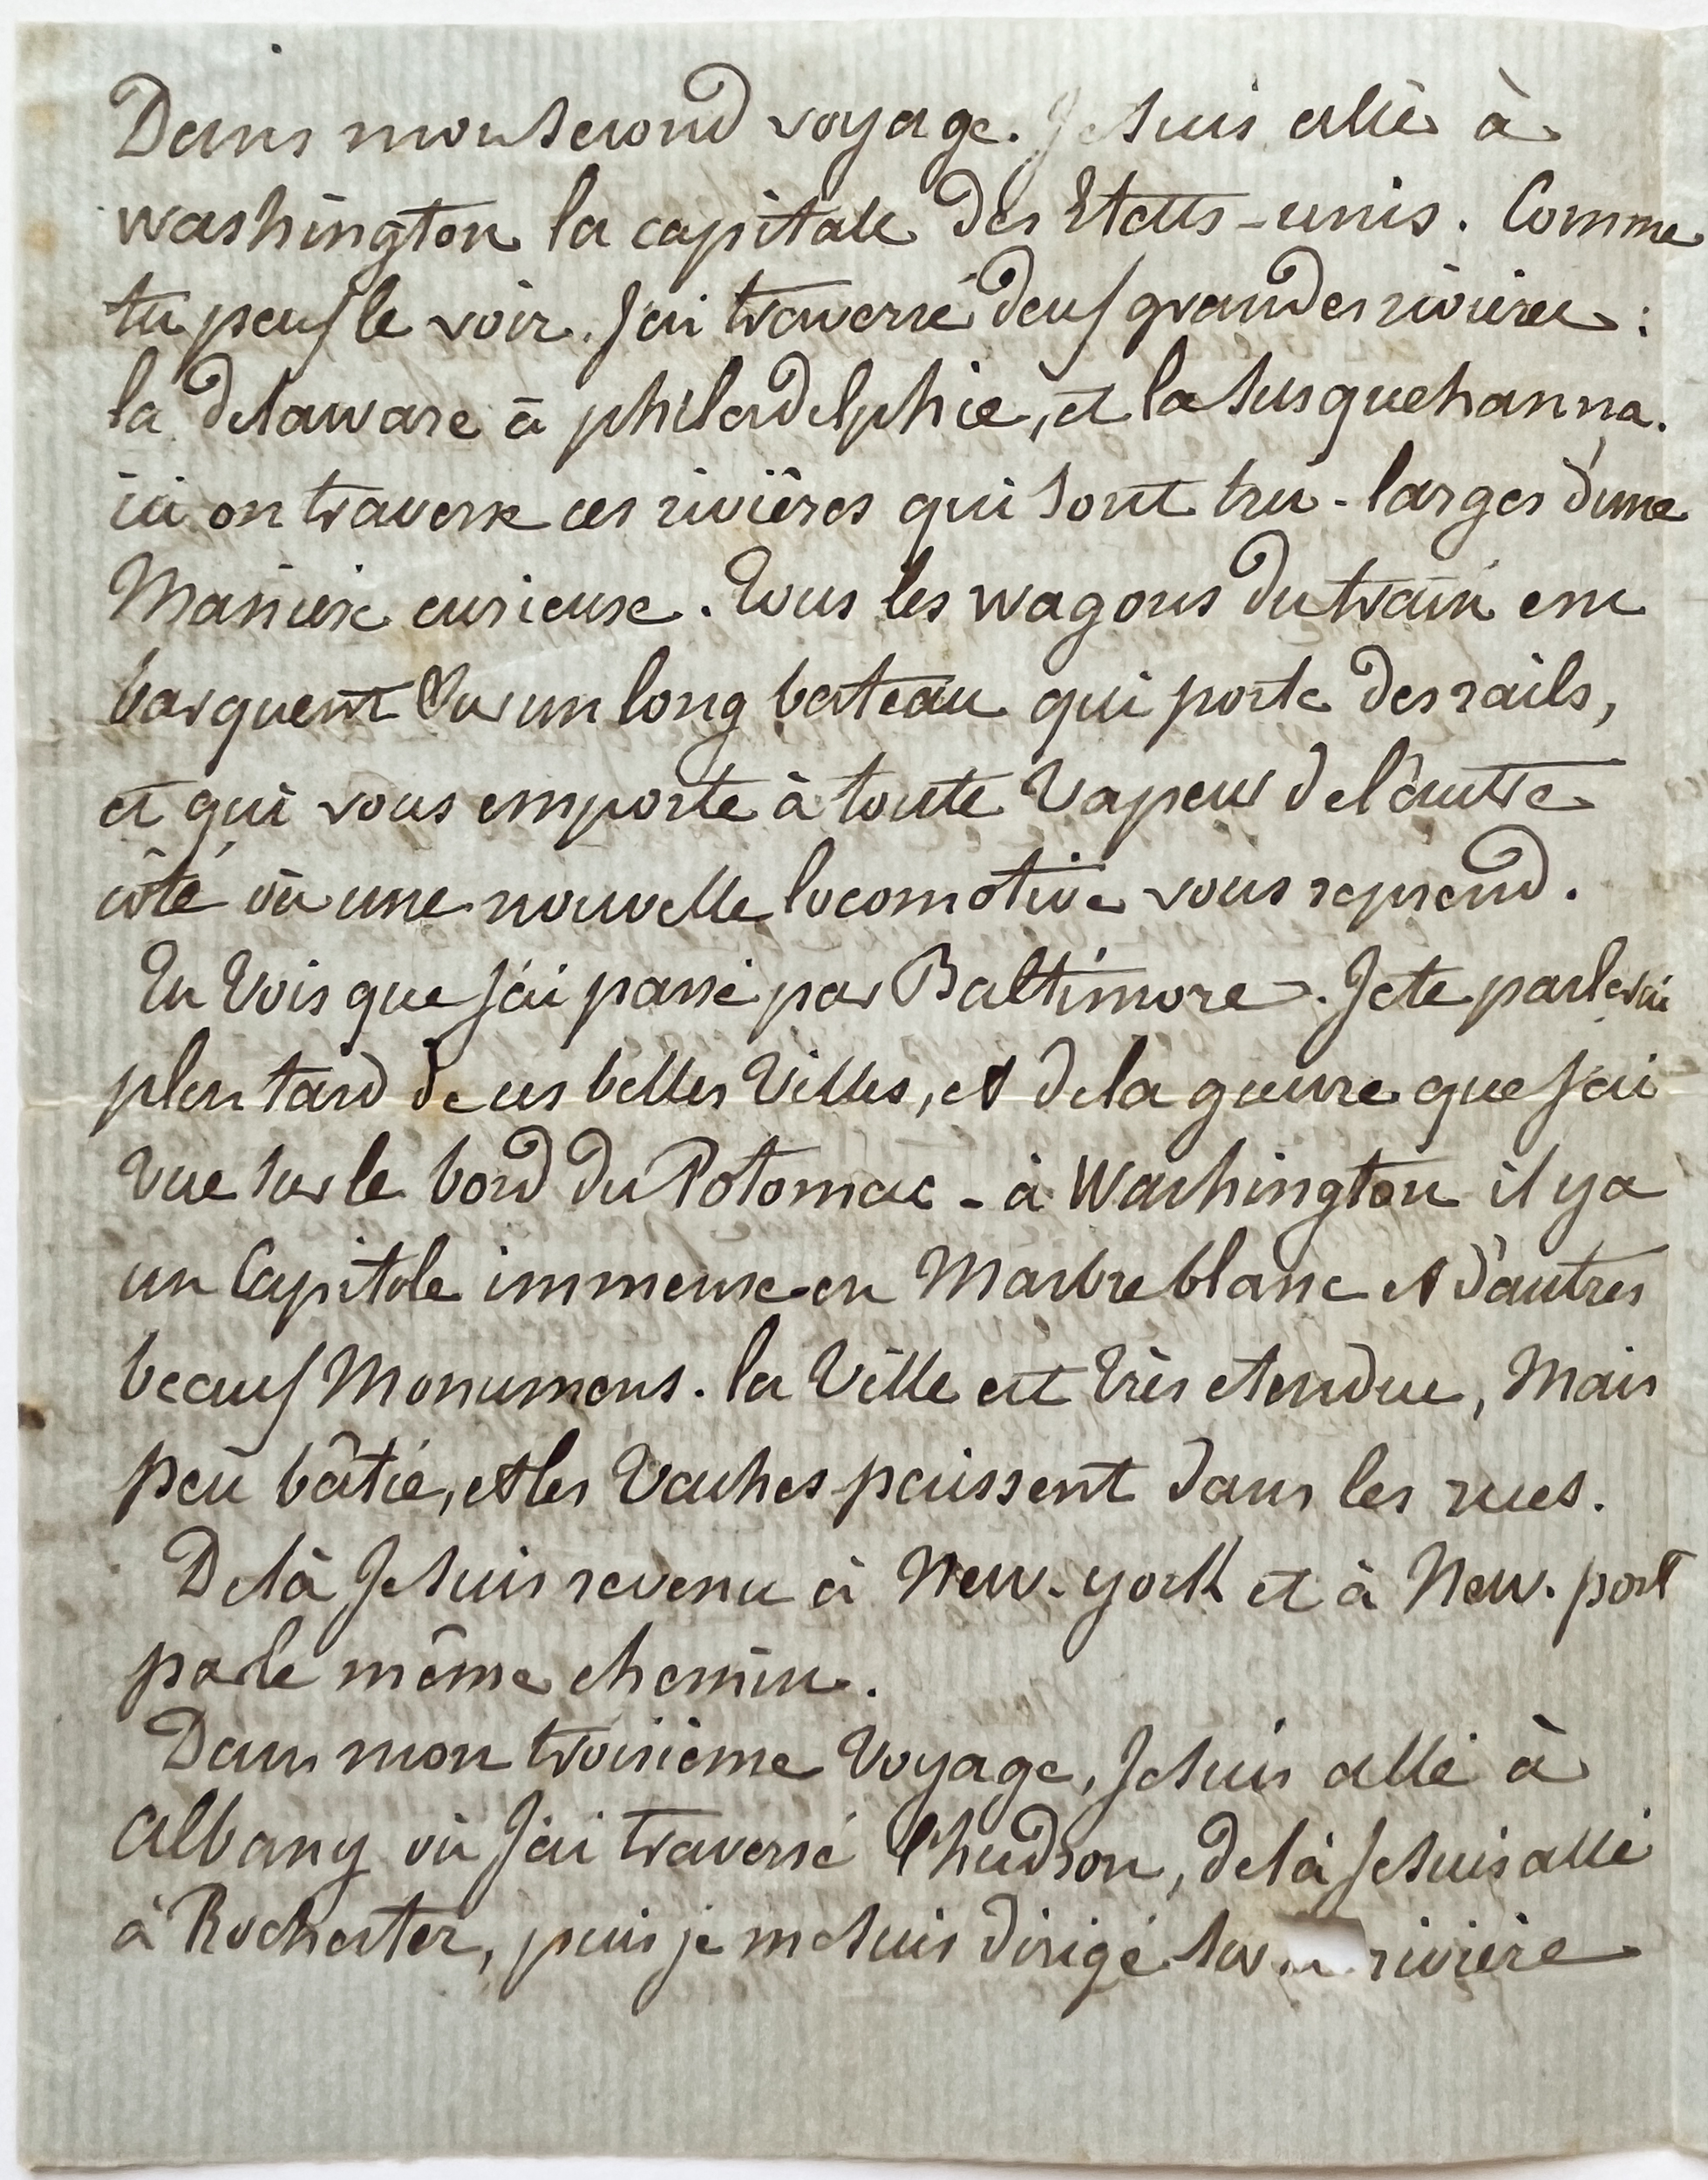 Dans mon second voyage. Je suis allé à
washington la capitale des Etats-unis. Comme
tu peux le voir. J'ai traversé deux grandes rivières :
la delaware à philadelphie, et la susquehanna.
ici on traverse ces rivières qui sont très-larges d'une
Manière curieuse. Tous les wagons du train em
barquent sur un long bateau qui porte des rails,
et qui vous emporte à toute Vapeur de l'autre
côté où une nouvelle locomotive vous reprend.
Tu Vois que j'ai passé par Baltimore. Je te parlerai
plus tard de ces belles Villes, et de la guerre que j'ai
Vue sur le bord du Potomac - à Washington il y a
un Capitole immense en Marbre blanc et d'autres
beaux Monumens. la Ville est très etendue, Mais
peu bâtie, et les Vaches paissent dans les rues.
De là Je suis revenu à New-york et à New-port
par le même chemin.
Dans mon troisième Voyage, Je suis allé à
Albany où J'ai traversé l'hudson, de là Je suis allé
à Rochester, puis je me suis dirigé sur rivière